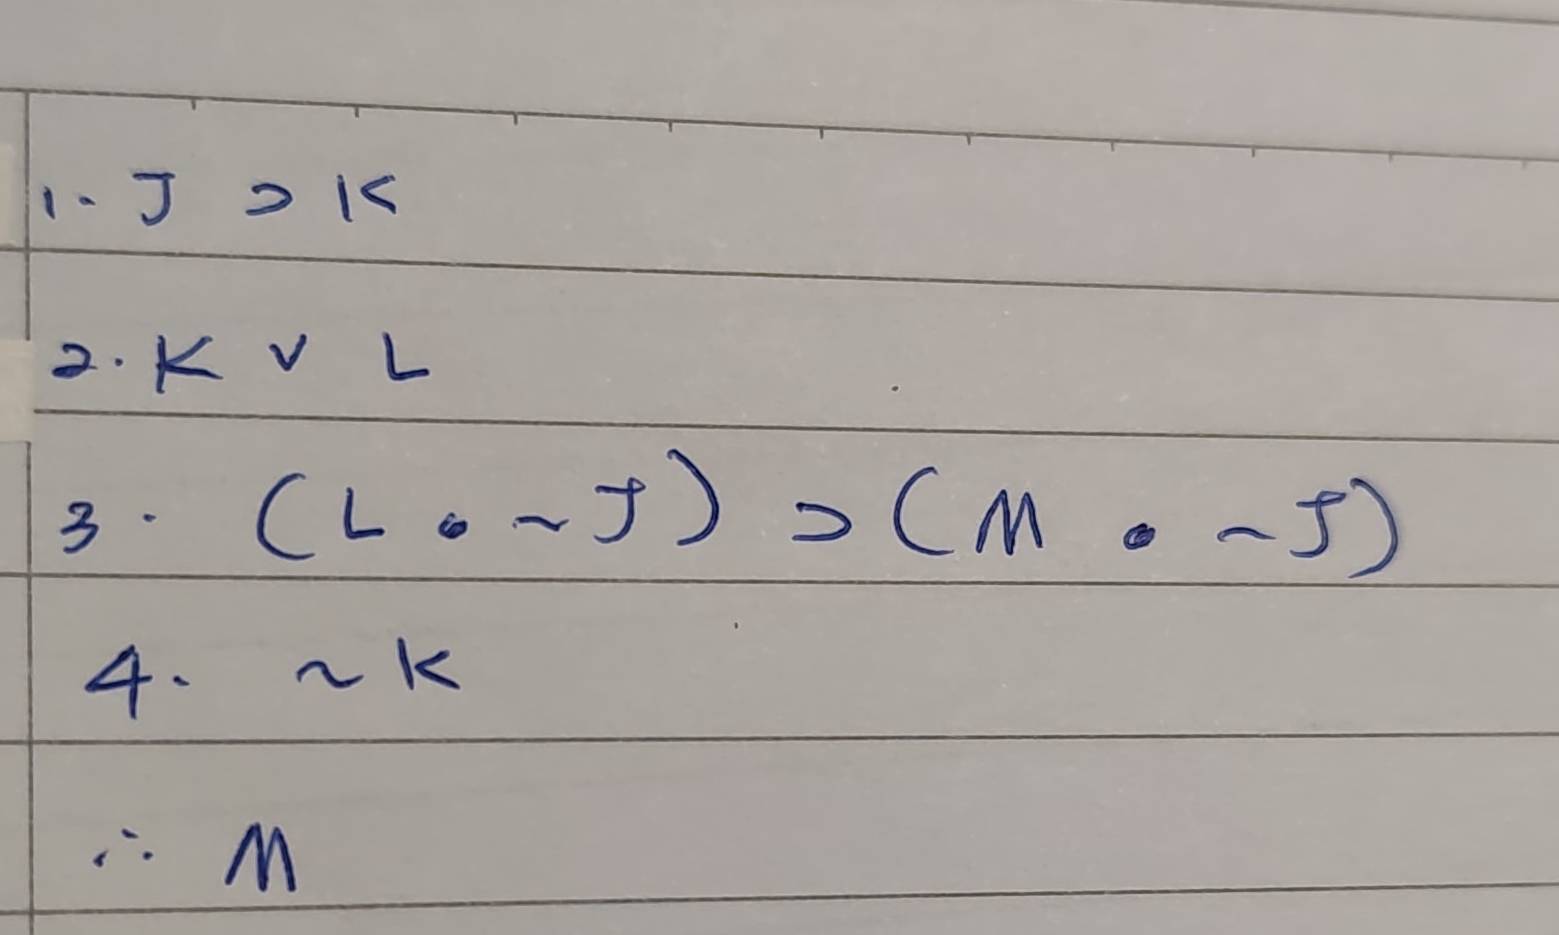 1. J ⊃ K
2. K ∨ L
3. (L • ~J) ⊃ (M • ~J)
4. ~K
∴ M